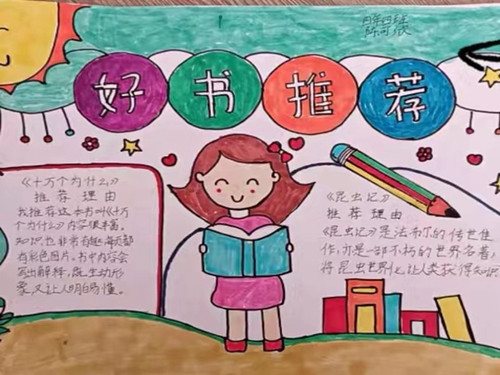 好书推荐
《十万个为什么》
推荐理由
我推荐这本书叫《十万
个为什么》内容很丰富。
知识也非常有趣，每页都
有彩色图片。书中内容会
写出解释，既生动形
象，又让人明白易懂。
《昆虫记》
推荐理由
《昆虫记》是法布尔的传世佳
作，亦是一部不朽的世界名著，
将昆虫世界化
让人类获得知识